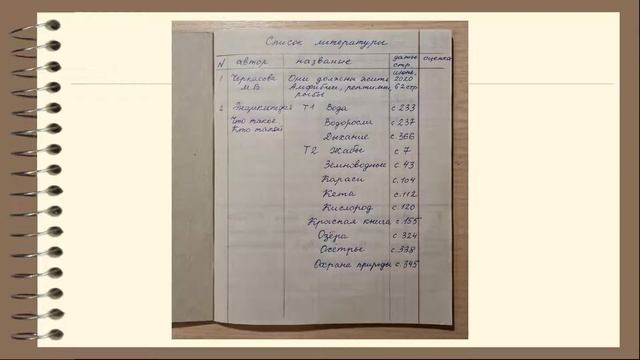 Список литературы
N автор название даты стр. оценка
1 Черкасова М.В. Они должны жить. Амфибии, рептилии, рыбы июнь, 2020 62 стр
2 Энциклопедия Что такое Кто такой Т1 Вода с 233
Водоросли с 237
Дыхание с. 366
Т2 Жабы с 7
Земноводные с. 43
Караси с. 104
Кета с. 112
Кислород с. 120
Красная книга с. 155
Озёра с. 324
Осетры с. 338
Охрана природы с. 345